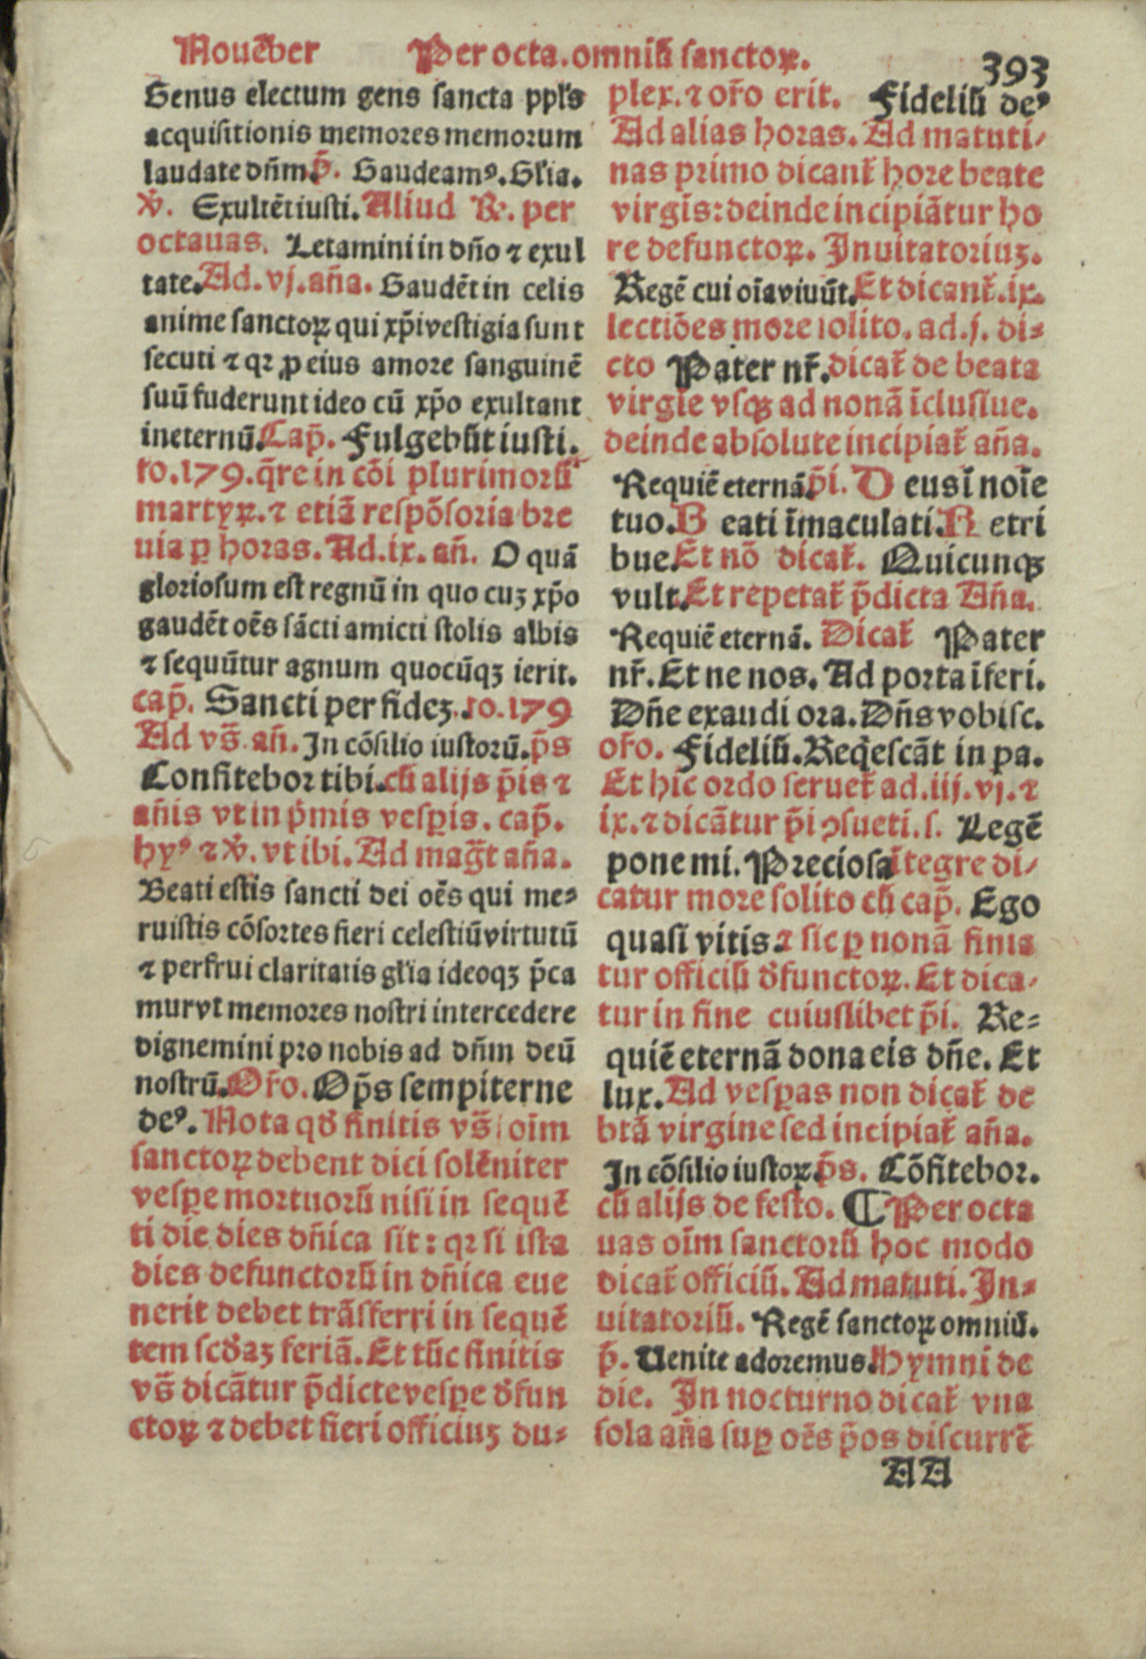 Nouẽber Per octa. omniũ sanctoꝝ. 393
Genus electum gens sancta ppl's
acquisitionis memores memorum
laudate dñm p̃. Gaudeamꝰ. Gl'ia.
℣. Exultẽt iusti. Aliud ℞. per
octauas. Letamini in dño ⁊ exul
tate. Ad. vj. aña. Gaudẽt in celis
anime sanctoꝝ qui xp̃i vestigia sunt
secuti ⁊ qꝛ ꝓ eius amore sanguinẽ
suũ fuderunt ideo cũ xp̃o exultant
in eternũ. Cap̃. Fulgebũt iusti.
fo. 179. q̃re in cõi plurimorũ
martyꝝ. ⁊ etiã respõsoria bre
uia ꝑ horas. Ad. ix. añ. O quã
gloriosum est regnũ in quo cuʒ xp̃o
gaudẽt oẽs sãcti amicti stolis albis
⁊ sequũtur agnum quocũqʒ ierit.
cap̃. Sancti per fideʒ. fo. 179
Ad vs̃. añ. In cõsilio iustorũ. p̃s
Confitebor tibi. cũ alijs p̃is ⁊
añis vt in p̃mis vesꝑis. cap̃.
hyꝰ ⁊ ℣. vt ibi. Ad mag̃t aña.
Beati estis sancti dei oẽs qui me⸗
ruistis cõsortes fieri celestiũ virtutũ
⁊ perfrui claritatis gl'ia ideoqʒ p̃ca
mur vt memores nostri intercedere
dignemini pro nobis ad dñm deũ
nostrũ. Or̃o. Op̃s sempiterne
deꝰ. Nota qď finitis vs̃ oĩm
sanctoꝝ debent dici solẽniter
vesꝑe mortuorũ nisi in sequẽ
ti die dies dñica sit: qꝛ si ista
dies defunctorũ in dñica eue
nerit debet trãsferri in sequẽ
tem scďaʒ feriã. Et tũc finitis
vs̃ dicãtur p̃dicte vesꝑe ďfun
ctoꝝ ⁊ debet fieri officiuʒ du⸗
plex. ⁊ or̃o erit. Fideliũ deꝰ
Ad alias horas. Ad matuti/
nas primo dicant̃ hore beate
virgĩs: deinde incipiãtur ho
re defunctoꝝ. Inuitatoriuʒ.
Regẽ cui oĩa viuũt. Et dicant̃. ix.
lectiões more solito. ad. j. di⸗
cto Pater nr̃. dicat̃ de beata
virgĩe vsqʒ ad nonã ĩclusĩue.
deinde absolute incipiat̃ aña.
Requiẽ eternã. p̃i. Deus ĩ noĩe
tuo. Beati ĩmaculati. Retri
bue. Et nõ dicat̃. Quicunqʒ
vult. Et repetat̃ p̃dicta Aña.
Requiẽ eternã. Dicat̃ Pater
nr̃. Et ne nos. Ad porta ĩferi.
Dñe exaudi ora. Dñs vobisc.
or̃o. Fideliũ. Req̃escãt in pa.
Et hic ordo seruet̃ ad. iij. vj. ⁊
ix. ⁊ dicãtur p̃i ↄsueti. s. Legẽ
pone mi. Preciosa ĩtegre di/
catur more solito cũ cap̃. Ego
quasi vitis. ⁊ sic ꝑ nonã finia
tur officiũ ďfunctoꝝ. Et dica/
tur in fine cuiuslibet p̃i. Re⸗
quiẽ eternã dona eis dñe. Et
lux. Ad vesꝑas non dicat̃ de
btã virgine sed incipiat̃ aña.
In cõsilio iustoꝝ. p̃s. Cõfitebor.
cũ alijs de festo. ¶ Per octa
uas oĩm sanctorũ hoc modo
dicat̃ officiũ. Ad matuti. In⸗
uitatoriũ. Regẽ sanctoꝝ omniũ.
p̃. Uenite adoremus. Hymni de
die. In nocturno dicat̃ vna
sola aña suꝑ oẽs p̃os discurrẽ
AA